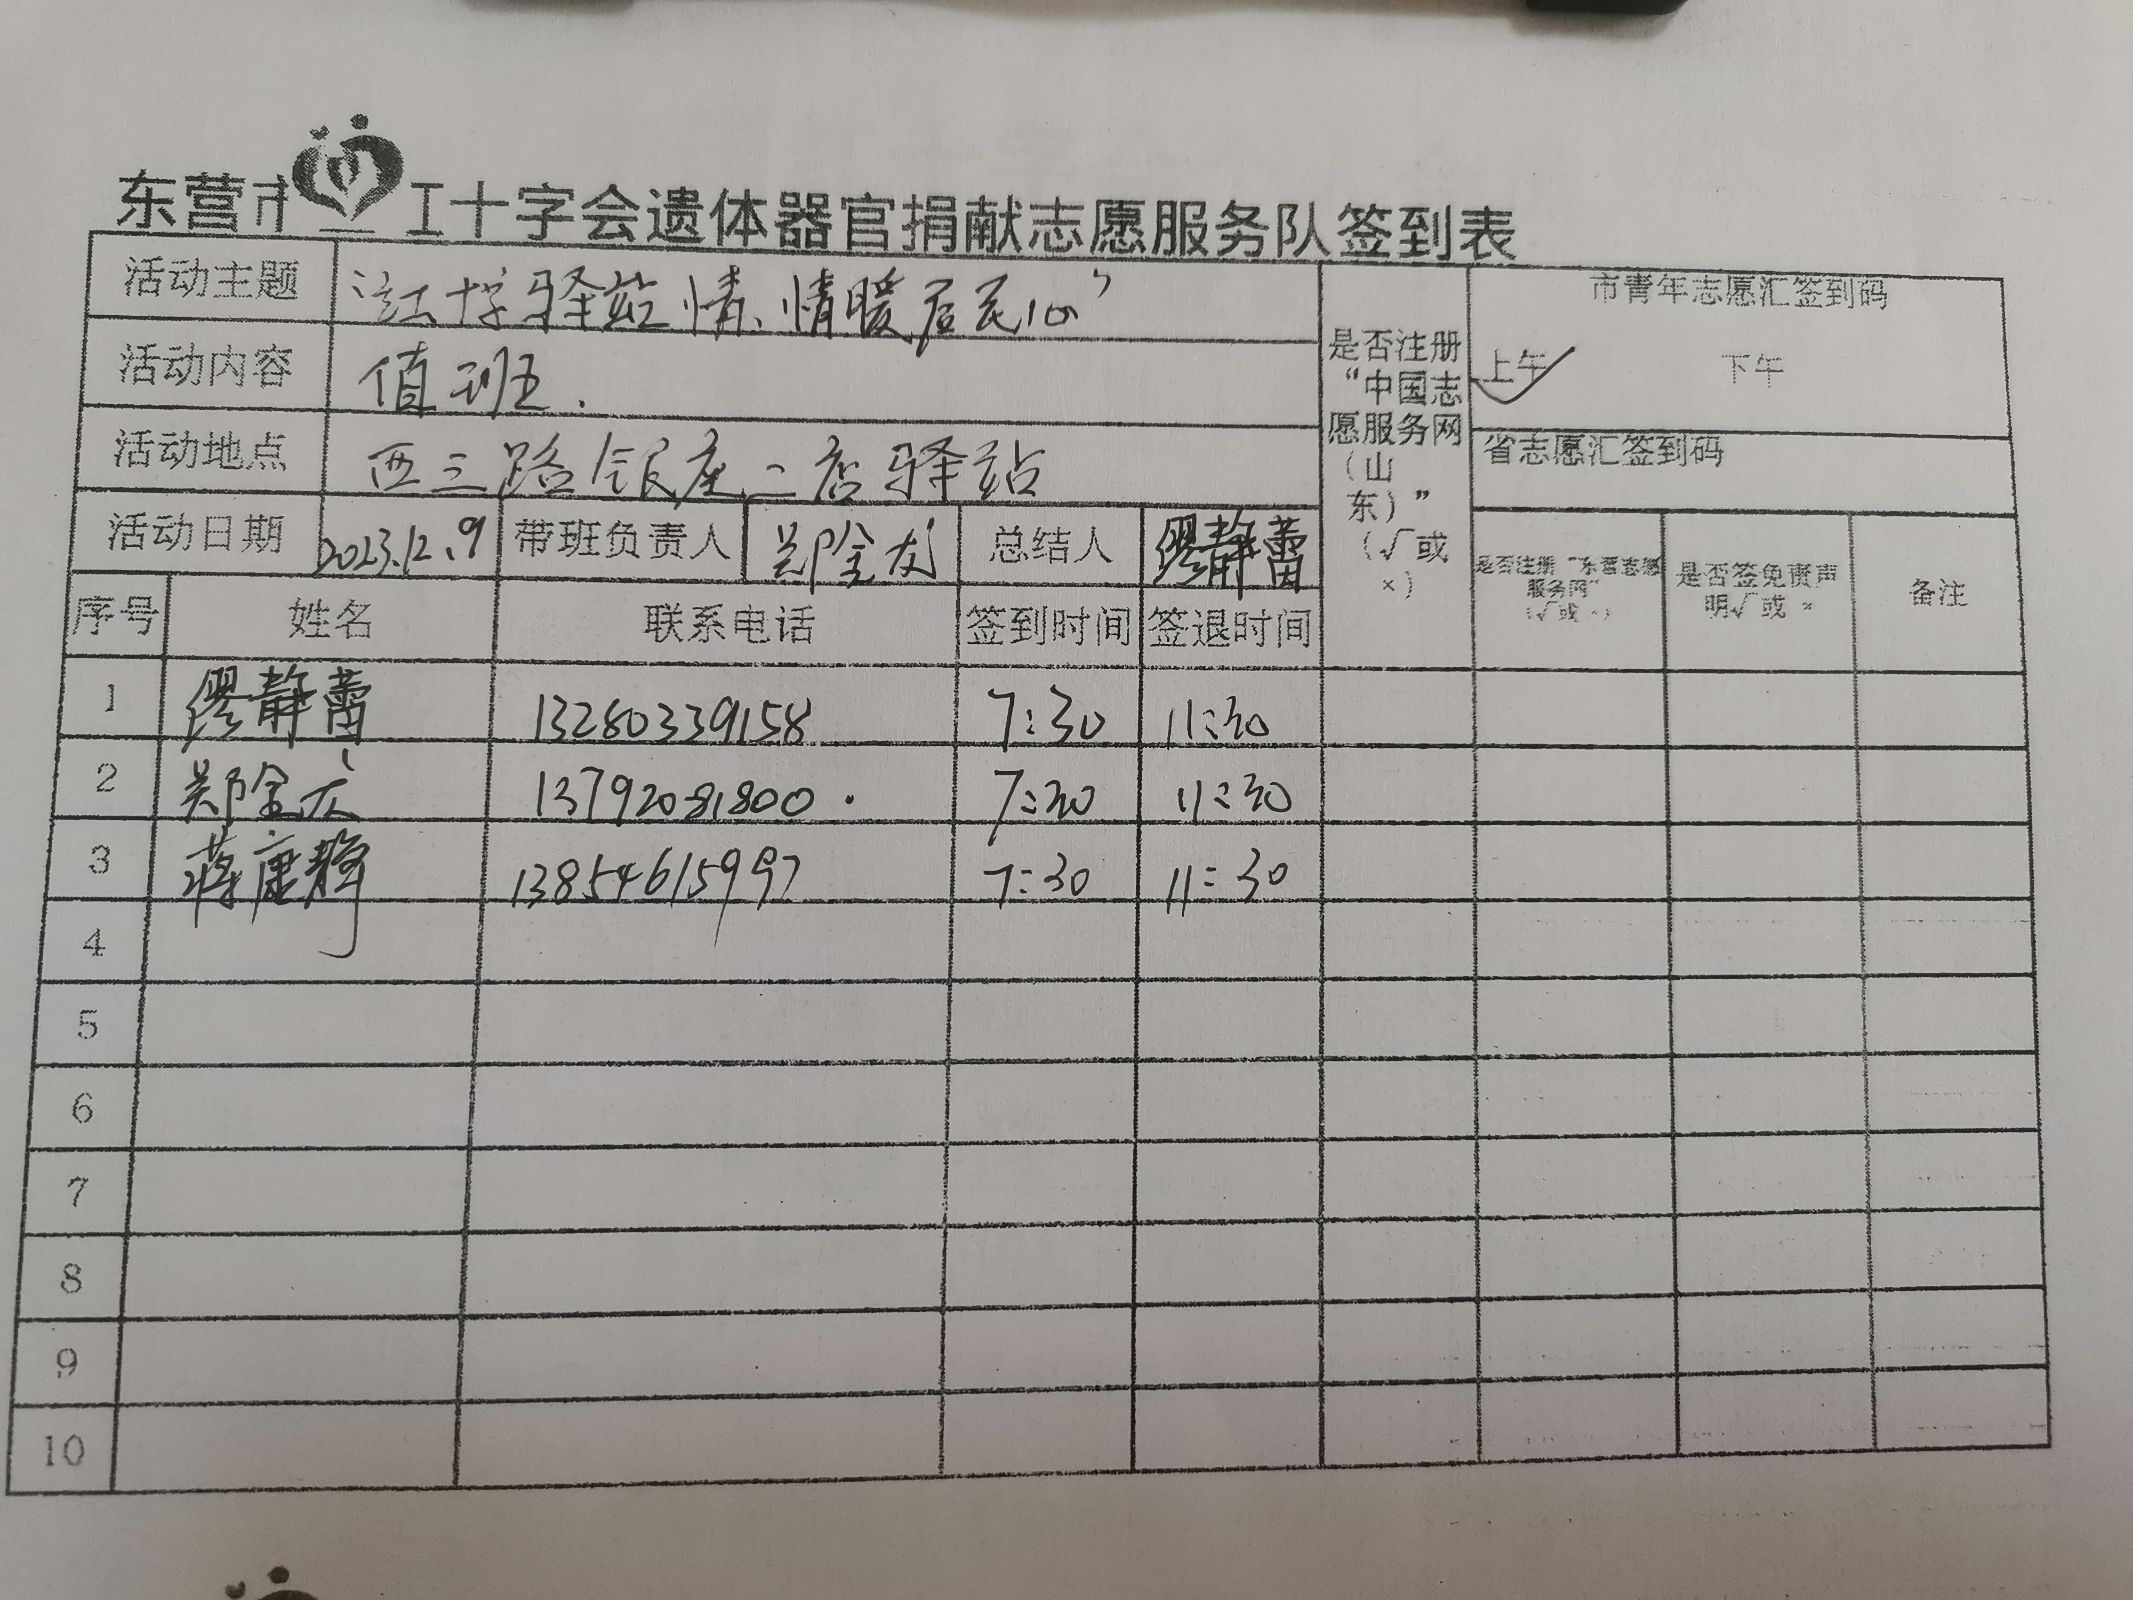 东营市红十字会遗体器官捐献志愿服务队签到表
活动主题 “红十字驿站情、情暖居民心”
活动内容 值班.
活动地点 西三路银座二店驿站
活动日期 2023.12.9 带班负责人 郑金友 总结人 缪静蕾
是否注册
“中国志
愿服务网
(山
东)”
(√或
×)
市青年志愿汇签到码
上午 下午
省志愿汇签到码
是否注册“东营志愿
服务网”
(√或×)
是否签免责声
明√或×
备注
序号 姓名 联系电话 签到时间 签退时间
1 缪静蕾 13280339158 7:30 11:30
2 郑金友 13792081800. 7:30 11:30
3 蒋康 13854615997 7:30 11:30
4
5
6
7
8
9
10